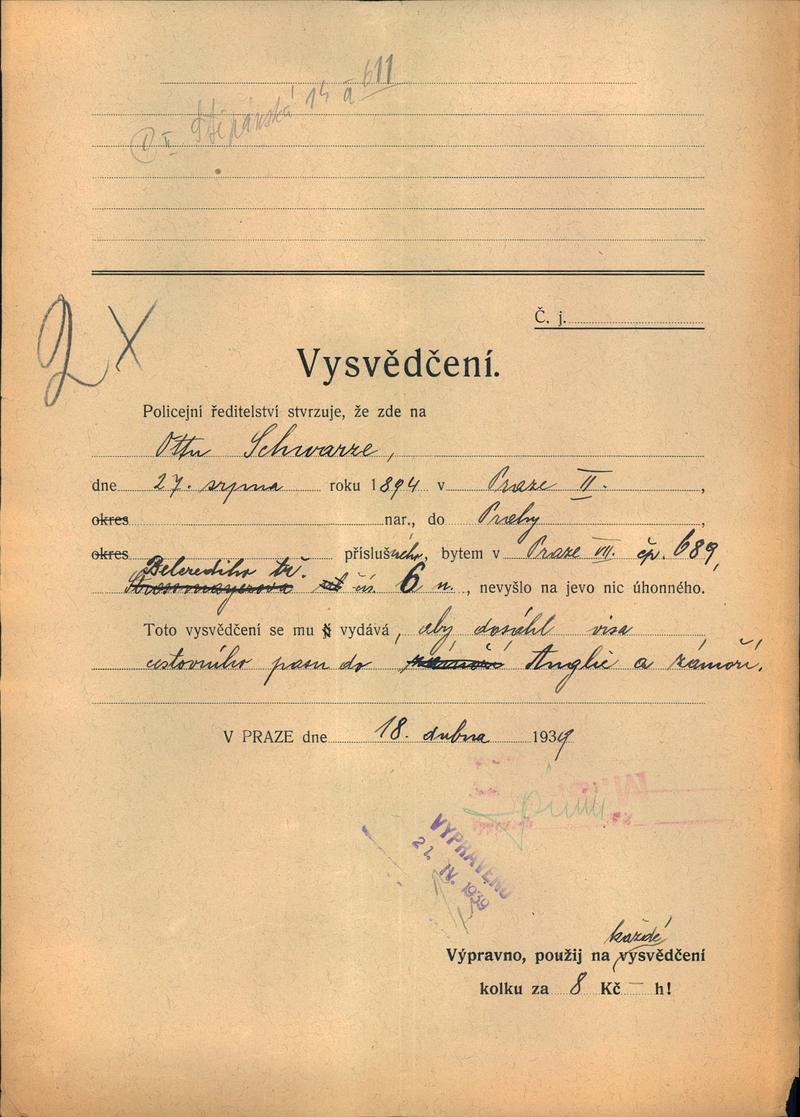 II Štěpánská 15 a 611
2 X
Č. j.
Vysvědčení.
Policejní ředitelství stvrzuje, že zde na
Ottu Schwarze,
dne 27. srpna roku 1894 v Praze II.,
okres nar., do Prahy,
okres příslušného, bytem v Praze VII. čp. 689,
Belcrediho tř.
Strossmayerova čís. 6 n., nevyšlo na jevo nic úhonného.
Toto vysvědčení se mu vydává, aby dosáhl visa,
cestovního pasu do zámoří Anglie a zámoří.
V PRAZE dne 18. dubna 1939
VYPRAVENO
21. IV. 1939
každé
Výpravno, použij na vysvědčení
kolku za 8 Kč — h!